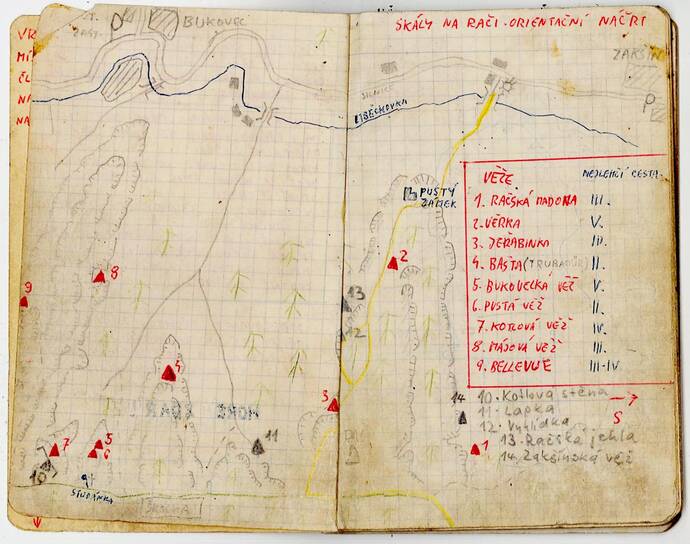 VR
MÍ
EL
NA
NA
P
BUKOVEC
SKÁLY NA RAČI - ORIENTAČNÍ NÁČRT
P
SILNICE
LIBĚCHOVKA
PUSTÝ
ZÁMEK
VĚŽE
NEJLEHČÍ CESTA
1. RAČSKÁ MADONA III.
2. VĚRKA V.
3. JEŘABINKA III.
4. BAŠTA (TRUBADÚR) II.
5. BUKOVECKÁ VĚŽ V.
6. PUSTÁ VĚŽ II.
7. KOTLOVÁ VĚŽ IV.
8. MÁJOVÁ VĚŽ III.
9. BELLEVUE III-IV.
10. Kotlova stěna
11. Lapka
12. Vyhlídka
13. Račská jehla
14. Zakšínská věž
S
9
8
2
13
12
4
3
14
1
7
5
6
10
11
STUDÁNKA